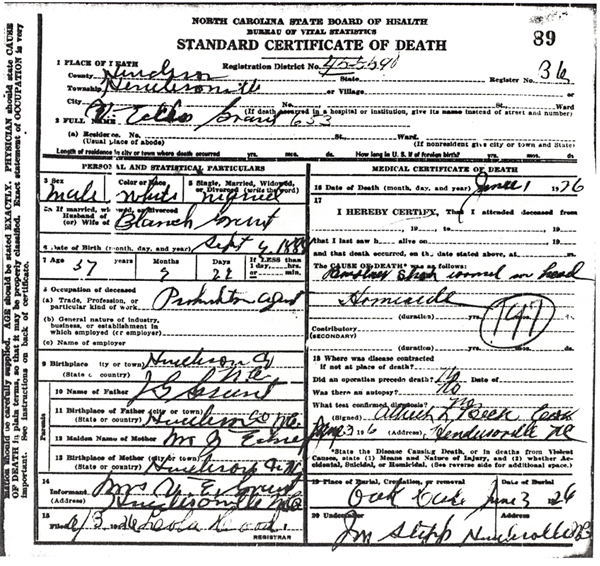 NORTH CAROLINA STATE BOARD OF HEALTH
BUREAU OF VITAL STATISTICS
STANDARD CERTIFICATE OF DEATH
89
1 PLACE OF DEATH
Registration District No.
County Henderson
State
Register No. 36
Township Hendersonville
or Village
or
City
No.
St.
Ward
(If death occurred in a hospital or institution, give its name instead of street and number)
2 FULL NAME
(a) Residence. No.
St.
Ward
(Usual place of abode)
(If nonresident give city or town and State)
Length of residence in city or town where death occurred yrs. mos. ds.
How long in U. S. if of foreign birth? yrs. mos. ds.
PERSONAL AND STATISTICAL PARTICULARS
3 Sex
Male
Color or Race
White
5 Single, Married, Widowed, or Divorced (write the word)
5a If married, widowed, or divorced
Husband of
(or) Wife of
Blanch Grant
6 Date of Birth (month, day, and year) Sept
7 Age 37
Months 9
Days
If LESS than
1 day, hrs.
or min.
8 Occupation of deceased
(a) Trade, Profession, or particular kind of work Prohibition Agent
(b) General nature of industry, business, or establishment in which employed (or employer)
(c) Name of employer
9 Birthplace (city or town) Henderson Co
(State or country) N.C.
Parents
10 Name of Father Grant
11 Birthplace of Father (city or town)
(State or country) Henderson Co N.C.
12 Maiden Name of Mother
13 Birthplace of Mother (city or town)
(State or country) Henderson Co N.C.
14
Informant Mrs Grant
(Address) Hendersonville N.C.
15
Filed 6/3 1926
REGISTRAR
MEDICAL CERTIFICATE OF DEATH
16 Date of Death (month, day, and year) June 1 1926
17
I HEREBY CERTIFY, That I attended deceased from
19 to 19
that I last saw h alive on 19
and that death occurred, on the date stated above, at m.
The CAUSE OF DEATH* was as follows:
shot wound in head
Homicide
(duration) yrs. mos. ds.
147
Contributory
(SECONDARY)
(duration) yrs. mos. ds.
18 Where was disease contracted
if not at place of death?
Did an operation precede death? No Date of
Was there an autopsy? No
What test confirmed diagnosis?
(Signed) Beck
June 3 1926 (Address) Hendersonville NC
*State the Disease Causing Death, or in deaths from Violent Causes, state (1) Means and Nature of Injury, and (2) whether Accidental, Suicidal, or Homicidal. (See reverse side for additional space.)
19 Place of Burial, Cremation, or removal
Date of Burial
June 3 1926
20 Undertaker
(Address)
J M Stepp Hendersonville
mation should be carefully supplied. AGE should be stated EXACTLY. PHYSICIAN should state CAUSE
OF DEATH in plain terms, so that it may be properly classified. Exact statement of OCCUPATION is very
important. See instructions on back of certificate.